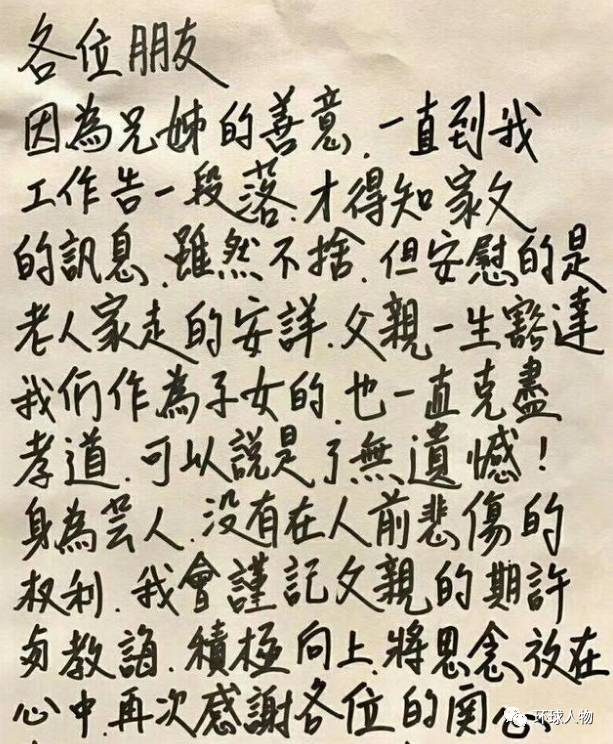 各位朋友
因為兄姊的善意.一直到我
工作告一段落.才得知家父
的訊息.雖然不捨.但安慰的是
老人家走的安詳.父親一生豁達
我们作為子女的.也一直克盡
孝道.可以說是了無遺憾!
身為芸人.没有在人前悲傷的
权利.我會謹記父親的期許
与教誨.積極向上.將思念放在
心中.再次感謝各位的関心.
环球人物